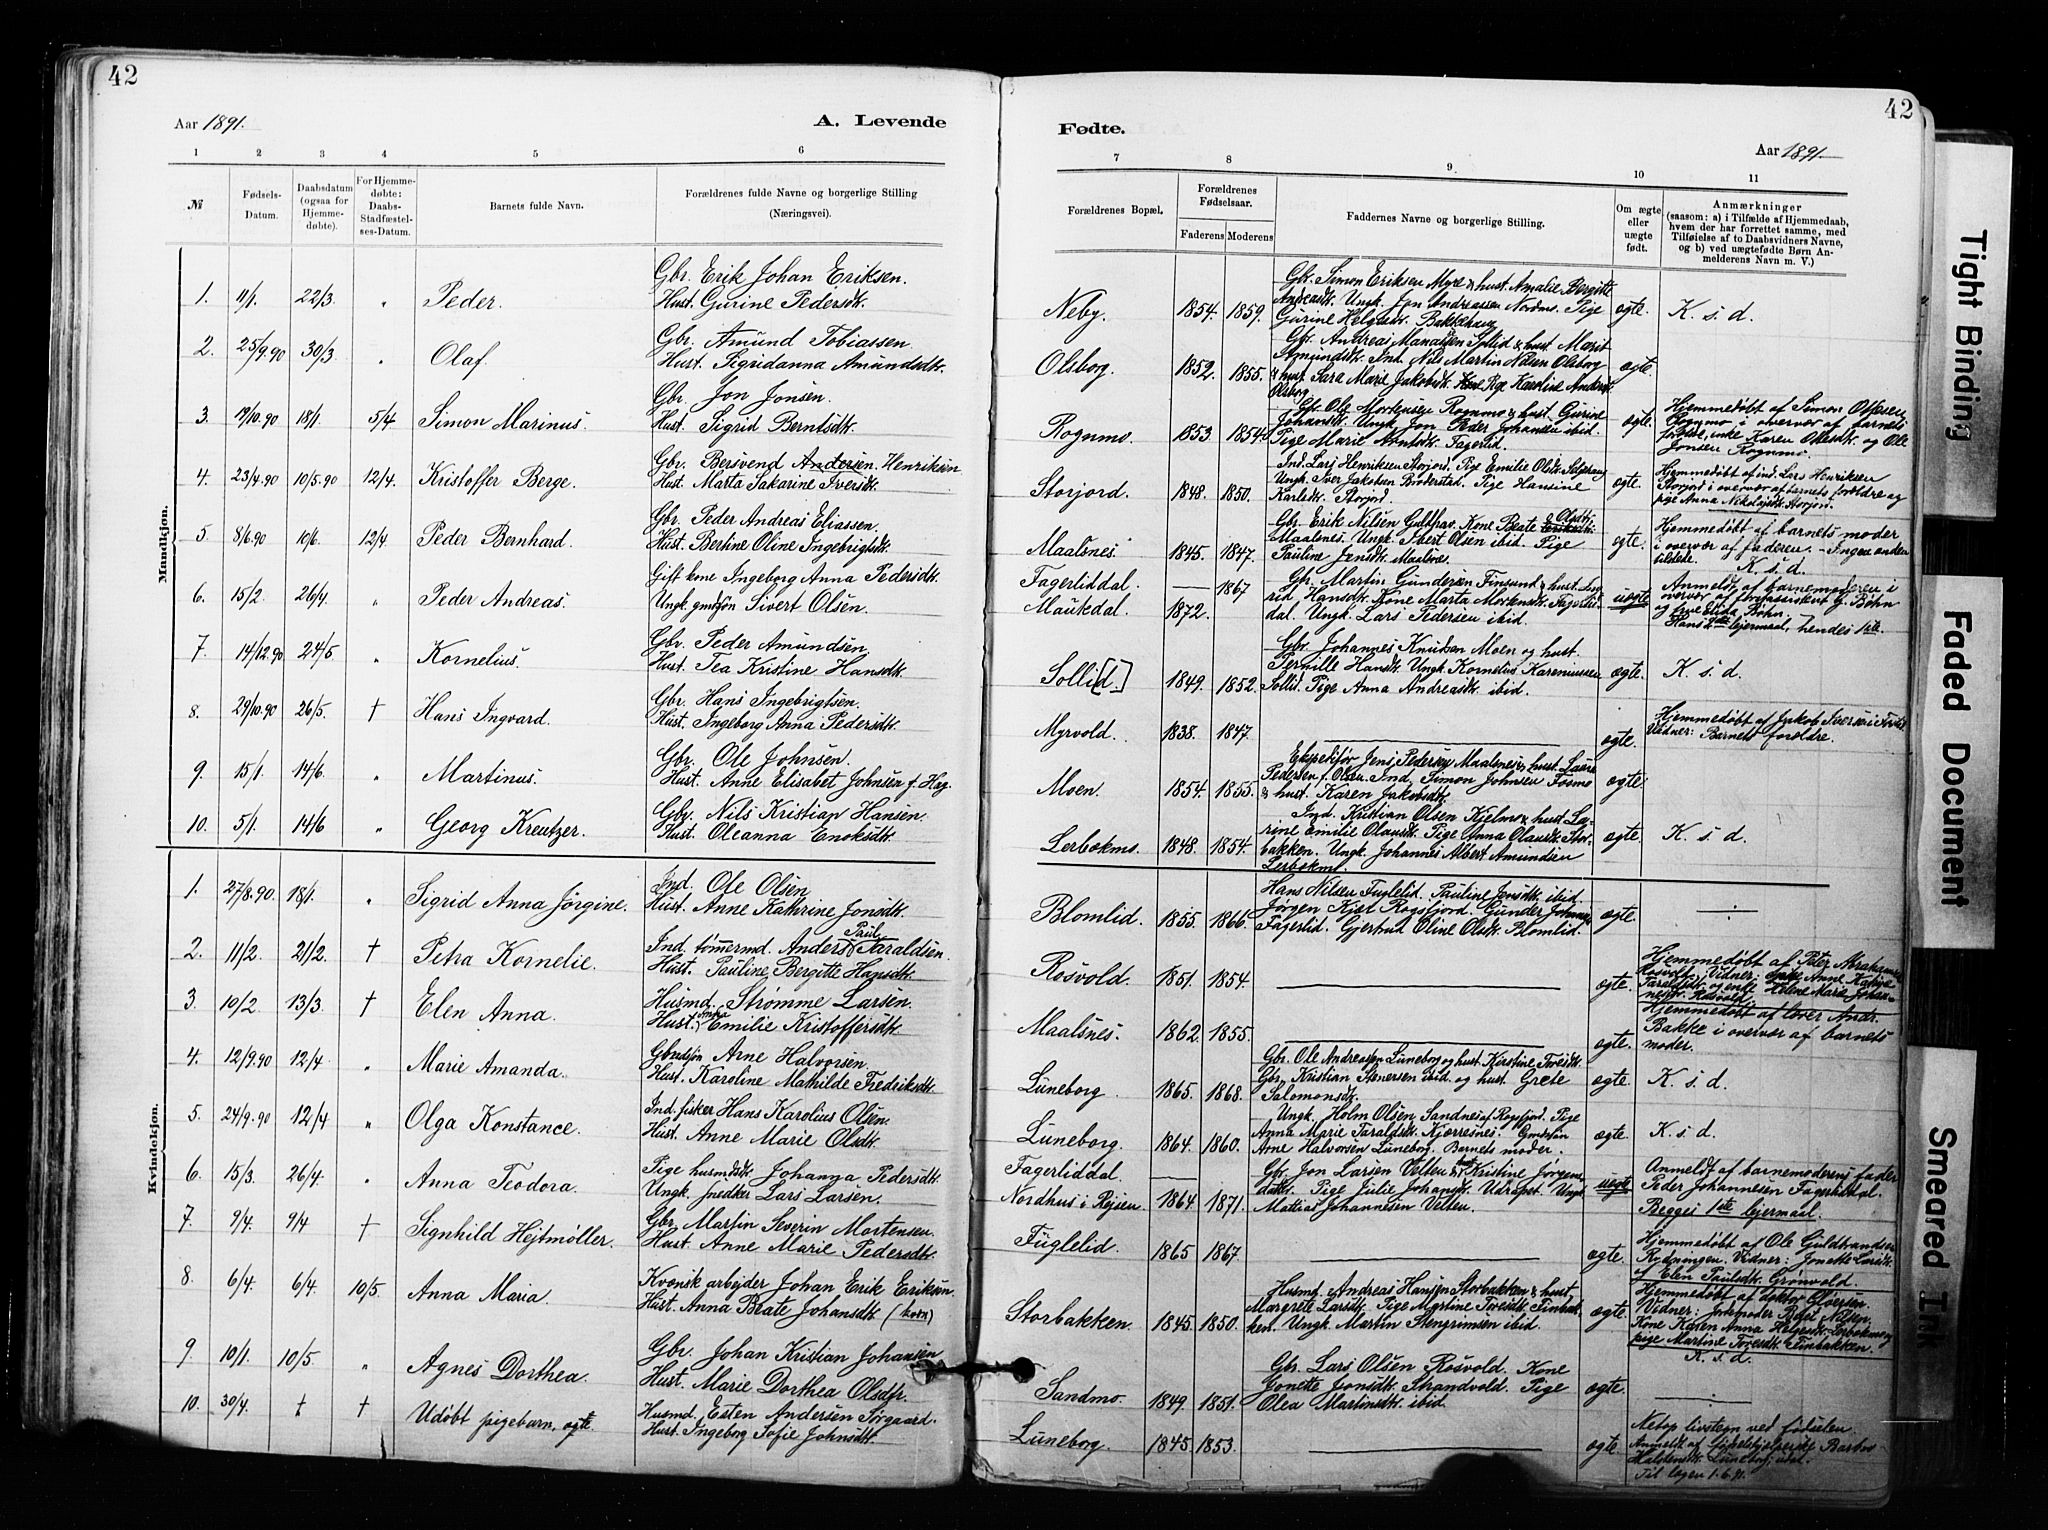 42
Aar 1891.
A. Levende
1 2 3 4 5 6
№ Fødsels-Datum. Daabsdatum (ogsaa for Hjemme-døbte). For Hjemme-døbte: Daabs-Stadfæstel-ses-Datum. Barnets fulde Navn. Forældrenes fulde Navne og borgerlige Stilling (Næringsvei).
Mandkjøn.
1. 11/1. 22/3. " Peder. Gbr. Erik Johan Eriksen.
Hust. Gurine Pedersdtr.
2. 25/9.90 30/3. " Olaf. Gbr. Amund Tobiassen.
Hust. Sigridanna Amundsdtr.
3. 19/10.90 18/1. 5/4. Simon Marinus. Gbr. Jon Jonsen.
Hust. Sigrid Berntsdtr.
4. 23/4.90 10/5.90 12/4. Kristoffer Berge. Gbr. Bersvend Andersen. Henriksen
Hust. Marta Sakarine Iversdtr.
5. 8/6.90 10/6. 12/4. Peder Bernhard. Gbr. Peder Andreas Eliassen.
Hust. Bertine Oline Ingebrigtsdtr.
6. 15/2. 26/4. " Peder Andreas. Gift kone Ingeborg Anna Pedersdtr.
Ungk. gmdsøn Sivert Olsen.
7. 14/12.90 24/5. " Kornelius. Gbr. Peder Amundsen.
Hust. Tea Kristine Hansdtr.
8. 29/10.90 26/5. † Hans Ingvard. Gbr. Hans Ingebrigtsen.
Hust. Ingeborg Anna Pedersdtr.
9. 15/1. 14/6. " Martinus. Gbr. Ole Johnsen.
Hust. Anne Elisabet Johnsen f. Hag.
10. 5/1. 14/6 " Georg Kreutzer. Gbr. Nils Kristian Hansen.
Hust. Oleanna Enoksdtr.
Kvindekjøn.
1. 27/8.90 18/1. " Sigrid Anna Jørgine. Ind. Ole Olsen
Hust. Anne Kathrine Jonsdtr.
2. 11/2. 21/2. † Petra Kornelie. Ind. tømmermd. Anders Paul Taraldsen.
Hust. Pauline Bergitte Hansdtr.
3. 10/2. 13/3. † Elen Anna. Husmd. Strømme Larsen.
Hust. Anna Emilie Kristoffersdtr.
4. 12/9.90 12/4. " Marie Amanda. Gbrudsøn Arne Halvorsen.
Hust. Karoline Mathilde Fredriksdtr.
5. 24/9.90 12/4 " Olga Konstance. Ind. fisker Hans Karolius Olsen.
Hust. Anne Marie Olsdtr.
6. 15/3. 26/4. " Anna Teodora. Pige husmdsdtr. Johanna Pedersdtr.
Ungk. snedker Lars Larsen.
7. 9/4. 9/4 † Signhild Hejtmøller. Gbr. Martin Severin Mortensen
Hust. Anne Marie Pedersdtr.
8. 6/4. 6/4. 10/5. Anna Maria. Kvænsk arbejder Johan Erik Eriksen
Hust. Anna Beate Johansdtr. (kvæn)
9. 10/1. 10/5. " Agnes Dorthea. Gbr. Johan Kristian Johansen
Hust. Marie Dorthea Olsdtr.
10. 30/4. † † Udøbt pigebarn, ægte. Husmd. Esten Andersen Sørgaard.
Hust. Ingeborg Sofie Johnsdtr.
42
Fødte.
Aar 1891.
7 8 9 10 11
Forældrenes Bopæl. Forældrenes Fødselsaar. Faderens Moderens Faddernes Navne og borgerlige Stilling. Om ægte eller uægte født. Anmærkninger (saasom: a) i Tilfælde af Hjemmedaab, hvem der har forrettet samme, med Tilføielse af to Daabsvidners Navne, og b) ved uægtefødte Børn Anmelderens Navn m. V.)
Neby. 1854. 1859. Gbr. Simon Eriksen Myre & hust. Amalie Bergitte
Andreasdtr. Ungk. Jon Andreassen Nordmo. Pige
Gurine Helgesdtr. Bakkehaug ægte. K. s. d.
Olsborg. 1852. 1855. Gbr. Andreas Manassen Sollid & hust. Marit
Amundsdtr. Ind. Nils Martin Nilsen Olsborg
& hust. Sara Marie Jakobsdtr. Pige Karoline Andersdtr.
Olsborg ægte.
Rognmo. 1853. 1854. Gbr. Ole Mortensen Rognmo & hust. Gurine
Johansdtr. Ungk. Jon Peder Johansen ibid.
Pige Marie Arntsdtr. Fagerlid. ægte. Hjemmedøbt af Simon Olsen
Rognmo i overvær af barnets
forældre, enke Karen Olesdtr. og Ole
Jonsen Rognmo.
Storjord. 1848. 1850. Ind. Lars Henriksen Storjord. Pige Emilie Olsdtr.
Ungk. Iver Jakobsen Broderstad. Pige Hansine
Karlsdtr. Storjord. ægte. Hjemmedøbt af ind. Lars Henriksen
Storjord i overvær af barnets forældre og
pige Anna Nikolajsdtr. Storjord.
Maalsnes. 1845. 1847. Gbr. Erik Nilsen Guldhav. Kone Beate Olsdtr.
Maalsnes. Ungk. Albert Olsen ibid. Pige
Pauline Jensdtr. Maalsnes. ægte. Hjemmedøbt af barnets moder
i overvær af faderen. Ingen anden
tilstede. K. s. d.
Fagerliddal. — 1867
Maukdal. 1872. Gbr. Martin Gundersen Finsund & hust. Sig-
rid Hansdtr. Kone Marta Mortensdtr. Fagerlid-
dal. Ungk. Lars Pedersen ibid. uægte. Anmeldt af barnemoderen i
overvær af G. Bøhn
og frue Elida Bøhn.
Hans 2det lejermaal, hendes 1ste.
Sollid[.] 1849. 1852. Gbr. Johannes Knudsen Moen og hust.
Pernille Hansdtr. Ungk. Kornelius Kareniussen
Sollid. Pige Anna Andreasdtr. ibid. ægte. K. s. d.
Myrvold. 1838. 1847. ægte. Hjemmedøbt af Jakob Iversen
Vidner: Barnets forældre.
Moen. 1854. 1855. Expeditør Jens Pedersen Maalsnes & hust. Laura
Pedersen f. Olsen. Ind. Simon Johnsen Fosmo
& hust. Karen Jakobsdtr. ægte.
Lerbækmo. 1848. 1854. Ind. Kristian Olsen Kjelmo & hust. La-
rine Emilie Olausdtr. Pige Anna Olausdtr. Stor-
bakken. Ungk. Johannes Albert Amundsen
Lerbækmo. ægte. K. s. d.
Blomlid. 1855. 1866. Hans Nilsen Fuglelid. Pauline Jensdtr. ibid.
Jørgen Kjæt Rossfjord. Gunder Johan
Fagerlid. Gjertrud Oline Olsdtr. Blomlid. ægte.
Rosvold. 1851. 1854. ægte. Hjemmedøbt af Peter Abrahamsen
Rosvold. Vidner: Enke Anne Katrine
Taraldsdtr. og enke Helene Marie Johan-
nesdtr. Rosvold.
Maalsnes. 1862. 1855. ægte. Hjemmedøbt af lærer Andr.
Bakke i overvær af barnets
moder.
Luneborg. 1865. 1868. Gbr. Ole Andreassen Luneborg og hust. Kirstine Toresdtr.
Gbr. Kristian Stenersen ibid. og hust. Grete
Salomonsdtr. ægte. K. s. d.
Luneborg. 1864. 1860. Ungk. Holm Olsen Sandnes af Rossfjord. Pige
Anna Marie Taraldsdtr. Kjærresnes. Gmdsøn
Arne Halvorsen Luneborg. Barnets moder. ægte. K. s. d.
Fagerliddal.
Nordhus i Rejsen. 1864 1871. Gbr. Jon Larsen Velten & hust. Kristine Jørgens-
datter. Pige Julie Johansdtr. Udrapet. Ungk.
Matias Johannesen Velten. uægte. Anmeldt af barnemoderens fader
Peder Johannesen Fagerliddal.
Begges 1ste lejermaal.
Fuglelid. 1865 1867. ægte. Hjemmedøbt af Ole Guldbrandsen
Rydningen. Vidner: Jonette Larsdtr.
& Elen Paulsdtr. Grønvold.
Storbakken. 1845. 1850. Husmd. Andreas Hansen Storbakken & hust.
Margrete Larsdtr. Pige Martine Toresdtr. Finbak-
ken. Ungk. Martin Stengrimsen ibid. ægte. Hjemmedøbt af doktor
Vidner: Jordmoder Beret Nilsen,
Kone Karen Anna Helgesdtr. Lerbækmo &
pige Martine Toresdtr. Finbakken.
K. s. d.
Sandmo. 1849. 1851. Gbr. Lars Olsen Rosvold. Kone
Jonette Jonsdtr. Strandvold. Pige
Olea Martinsdtr. ibid. ægte.
Luneborg. 1845. 1853. ægte. Netop livstegn ved fødselen
Anmeldt af fødselshjælperske Barbro
Halstensdtr. Luneborg
Til lagen 1.6.91.
Tight Binding
Faded Document
Smeared Ink